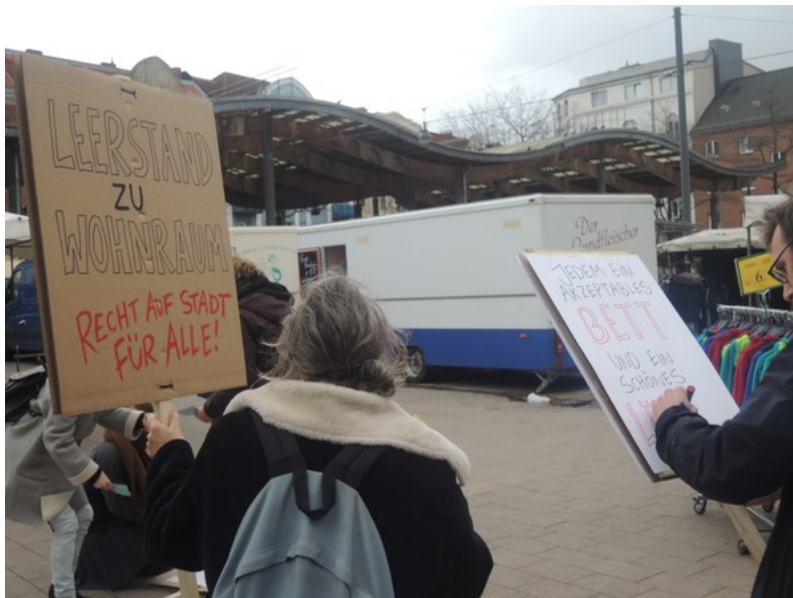 LEERSTAND
ZU
WOHNRAUM
RECHT AUF STADT
FÜR ALLE!
Der
Landfleischer
JEDEM EIN
AKZEPTABLES
BETT
UND EIN
SCHÖNES
6.